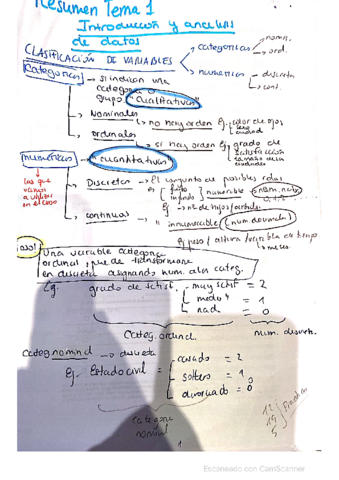 Resumen Tema 1
Introducción y analisis
de datos
CLASIFICACIÓN DE VARIABLES
categoricas
nomin.
ord.
numericas
discreta
cont.
Categoricas
si indican una
categoria o
grupo "cualitativas"
Nominales
no hay orden Ej. color de ojos
sexo
ciudad
ordinales
si hay orden Ej. grado de
satisfacción
numericas
"cuantitativas"
Las que
vamos
a utilizar
en el caso
Discretas → El conjunto de posibles
es finito
numerable
Ej. nº de hijos
continuas
" innumerable (num. decimal)
Ej. peso / altura / variable de tiempo
meses
¡ojo!
Una variable categorica
ordinal puede transformarse
en discreta asignando num. a las categ.
Ej. grado de satisf. muy satisf = 2
medio = 1
nad = 0
Categ. ordinal.
num. discreta.
Categ nominal → discreta
Ej. Estado civil = casado = 2
soltero = 1
divorciado = 0
categoria
nominal
0
1
12
15
5
Escaneado con CamScanner